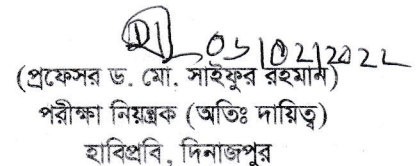 05/02/2022
(প্রফেসর ড. মো. সাইফুর রহমান)
পরীক্ষা নিয়ন্ত্রক (অতিঃ দায়িত্ব)
হাবিপ্রবি, দিনাজপুর